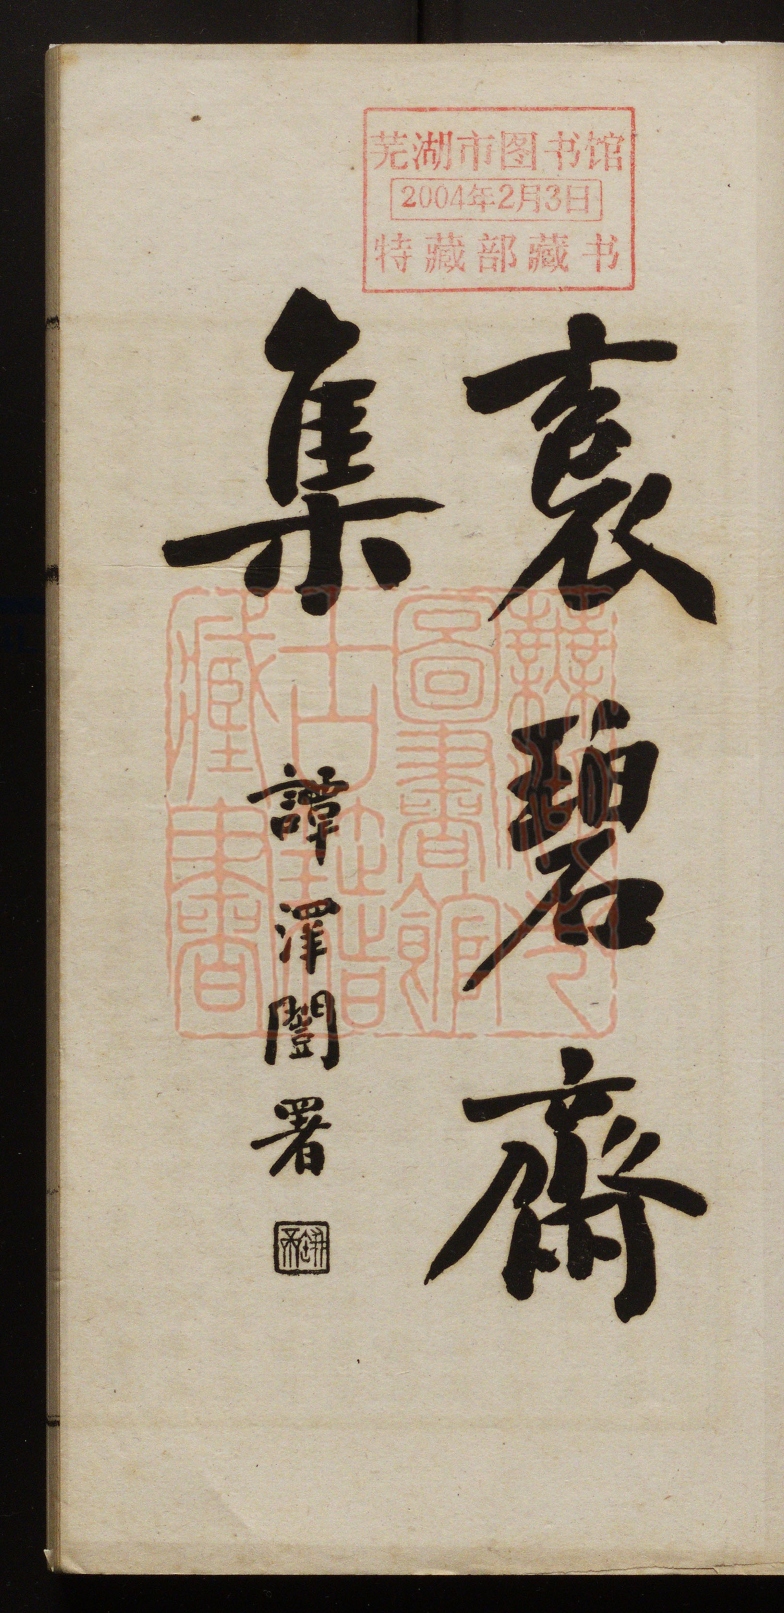 芜湖市图书馆
2004年2月3日
特藏部藏书
袌碧齋
集
譚澤闓署
蕪湖市
圖書館
古籍
藏書